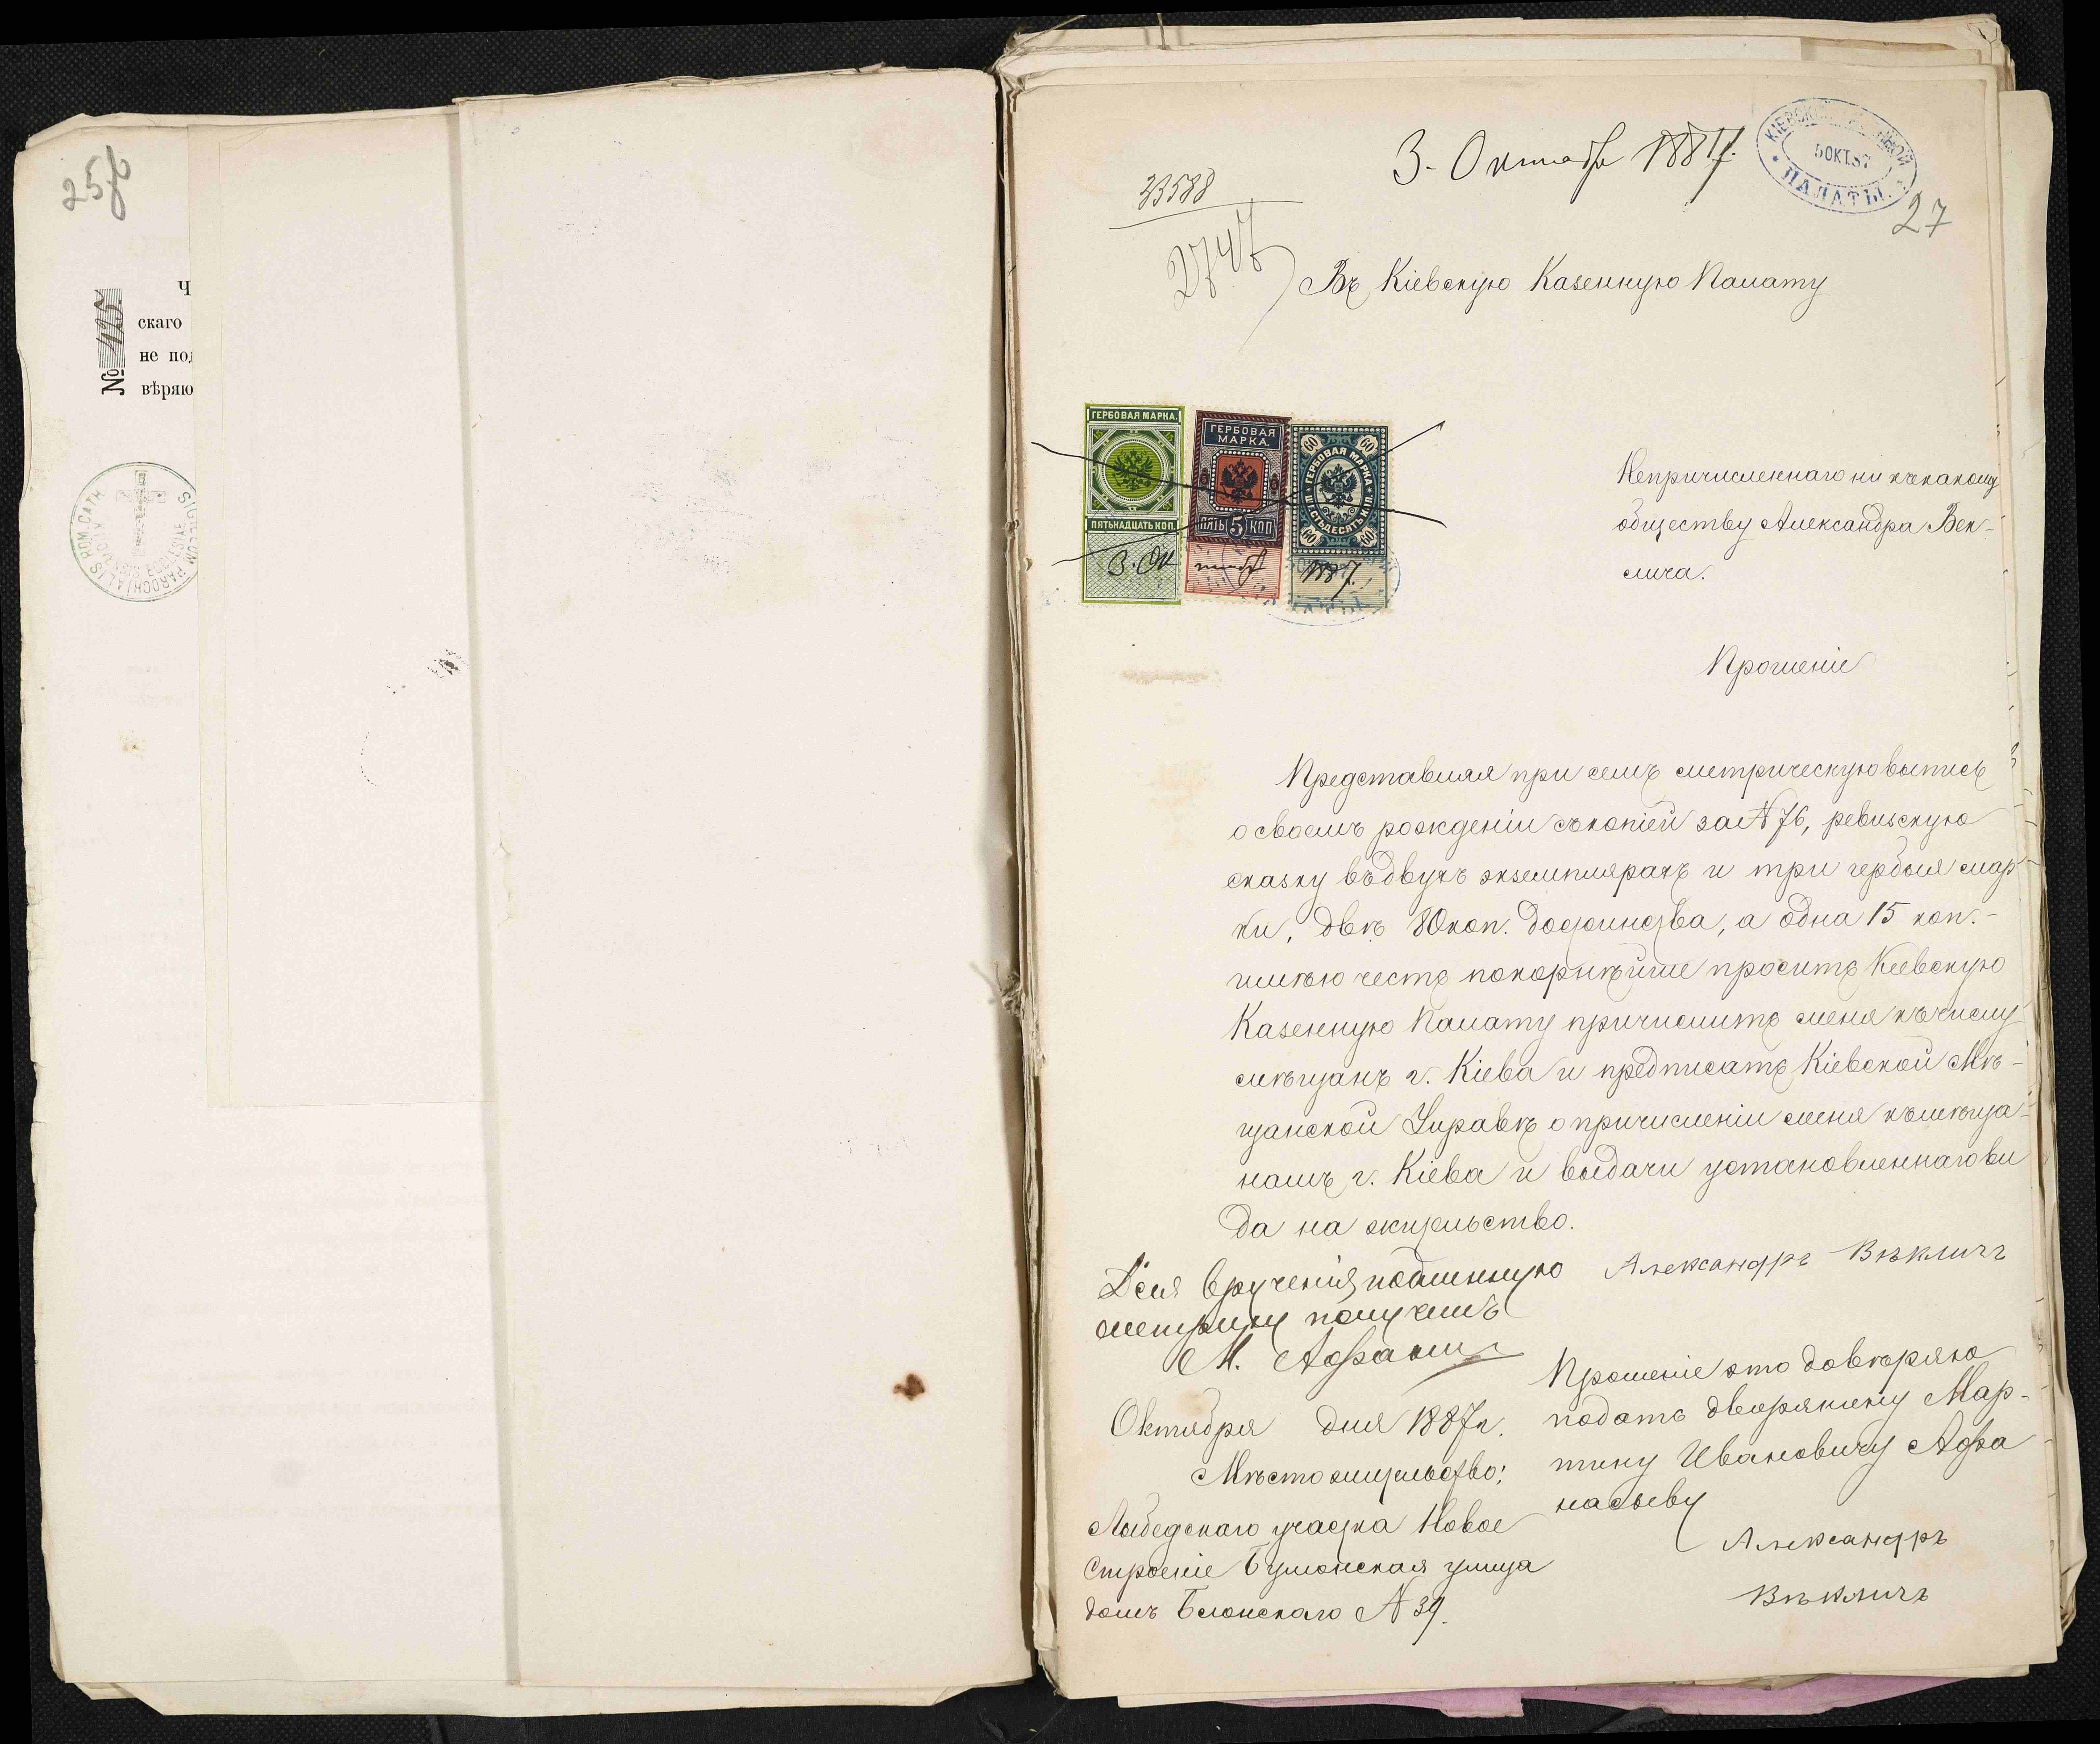 256
Ч
скаго
не под
вѣряю
№ 125
SIGILLUM PAROCHIALIS ROM. CATH.
3. Октября 1887.
КІЕВСКОЙ КАЗЕННОЙ
5 ОКТ. 87
ПАЛАТЫ.
27
33588
2747
Въ Кіевскую Казенную Палату
ГЕРБОВАЯ МАРКА.
ПЯТЬНАДЦАТЬ КОП.
3. Ок
ГЕРБОВАЯ
МАРКА.
ПЯТЬ 5 КОП
тября
60 60
ГЕРБОВАЯ МАРКА
ШЕСТЬДЕСЯТЬ КОП.
60 60
1887.
Непричисленнаго ни къ какому
обществу Александра Век-
лича.
Прошеніе
Представляя при семъ метрическую выпись
о своемъ рожденіи съ копіей за № 76, ревизскую
сказку въ двухъ экземплярахъ и три гербыя мар-
ки, двѣ 80 коп. достоинства, а одна 15 коп.-
имѣю честь покорнѣйше просить Кіевскую
Казенную Палату причислить меня къ числу
мѣщанъ г. Кіева и предписать Кіевской Мѣ-
щанской Управѣ о причисленіи меня къ мѣща-
намъ г. Кіева и выдачи установленнаго ви
да на жительство.
Александръ Вѣкличъ
Для врученія подлинную
метрику получилъ
М.
Октября дня 1887 г.
Мѣсто жительство:
Лыбедскаго участка Новое
Строеніе Бульонская улица
домъ № 39.
Прошеніе это довѣряю
подать дворянину Мар-
тину Ивановичу Афа
насьеву
Александръ
Вѣкличъ